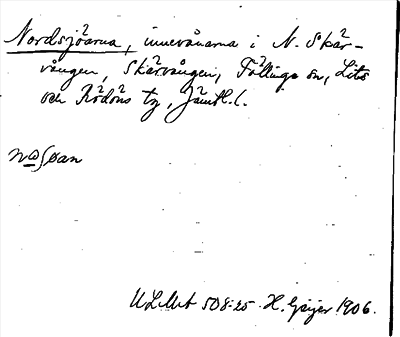 Nordsjöarna, innevånarna i N. Skär-
vången, Skärvången, Föllinge sn, Lits
och Rödöns tg, Jämtl. l.
ULMA 508:25 H. Geijer 1906.